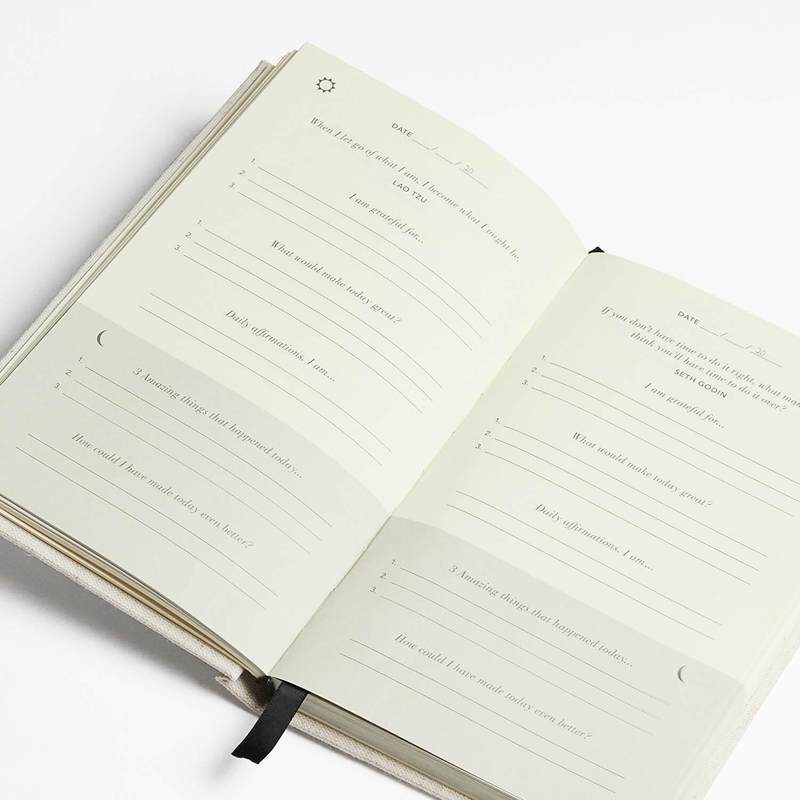 DATE___/___/20___
When I let go of what I am, I become what I might be.
LAO TZU
I am grateful for...
1.
2.
3.
What would make today great?
1.
2.
3.
Daily affirmations. I am...
3 Amazing things that happened today...
1.
2.
3.
How could I have made today even better?
DATE___/___/20___
If you don't have time to do it right, what
think you'll have time to do it over?
SETH GODIN
I am grateful for...
1.
2.
3.
What would make today great?
1.
2.
3.
Daily affirmations. I am...
3 Amazing things that happened today...
1.
2.
3.
How could I have made today even better?